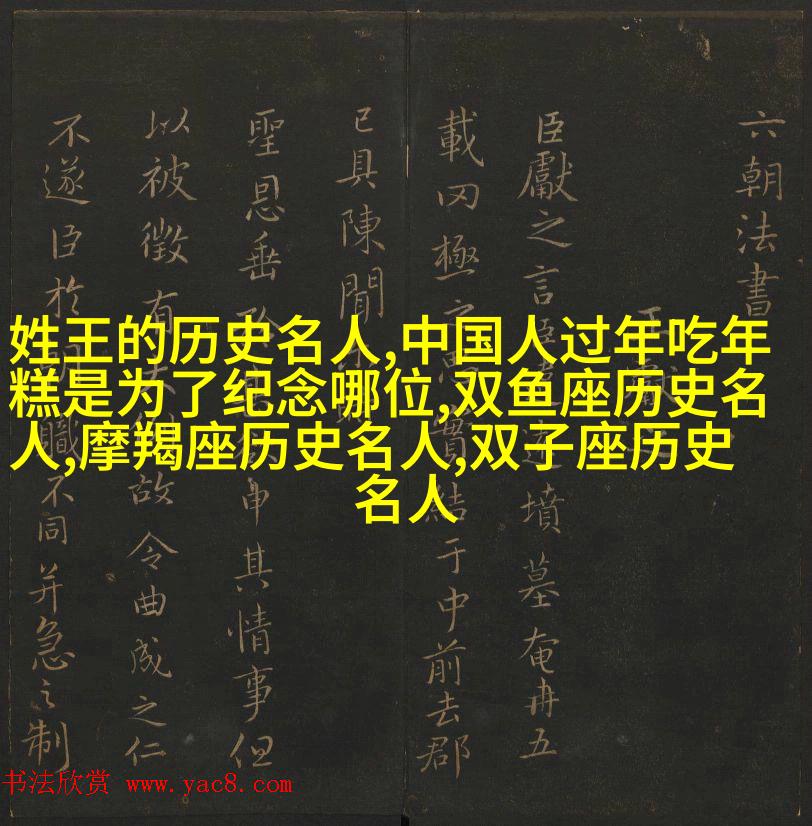 姓王的历史名人,中国人过年吃年
糕是为了纪念哪位,双鱼座历史名
人,摩羯座历史名人,双子座历史
名人
六朝法書
臣獻之言
墳墓奄冉五
載罔極
結于中前去郡
已具陳聞
聖恩垂
申其情事但
以被徵有
故令曲成之仁
不遂臣於
職不同并急之制
书法欣赏 www.yac8.com